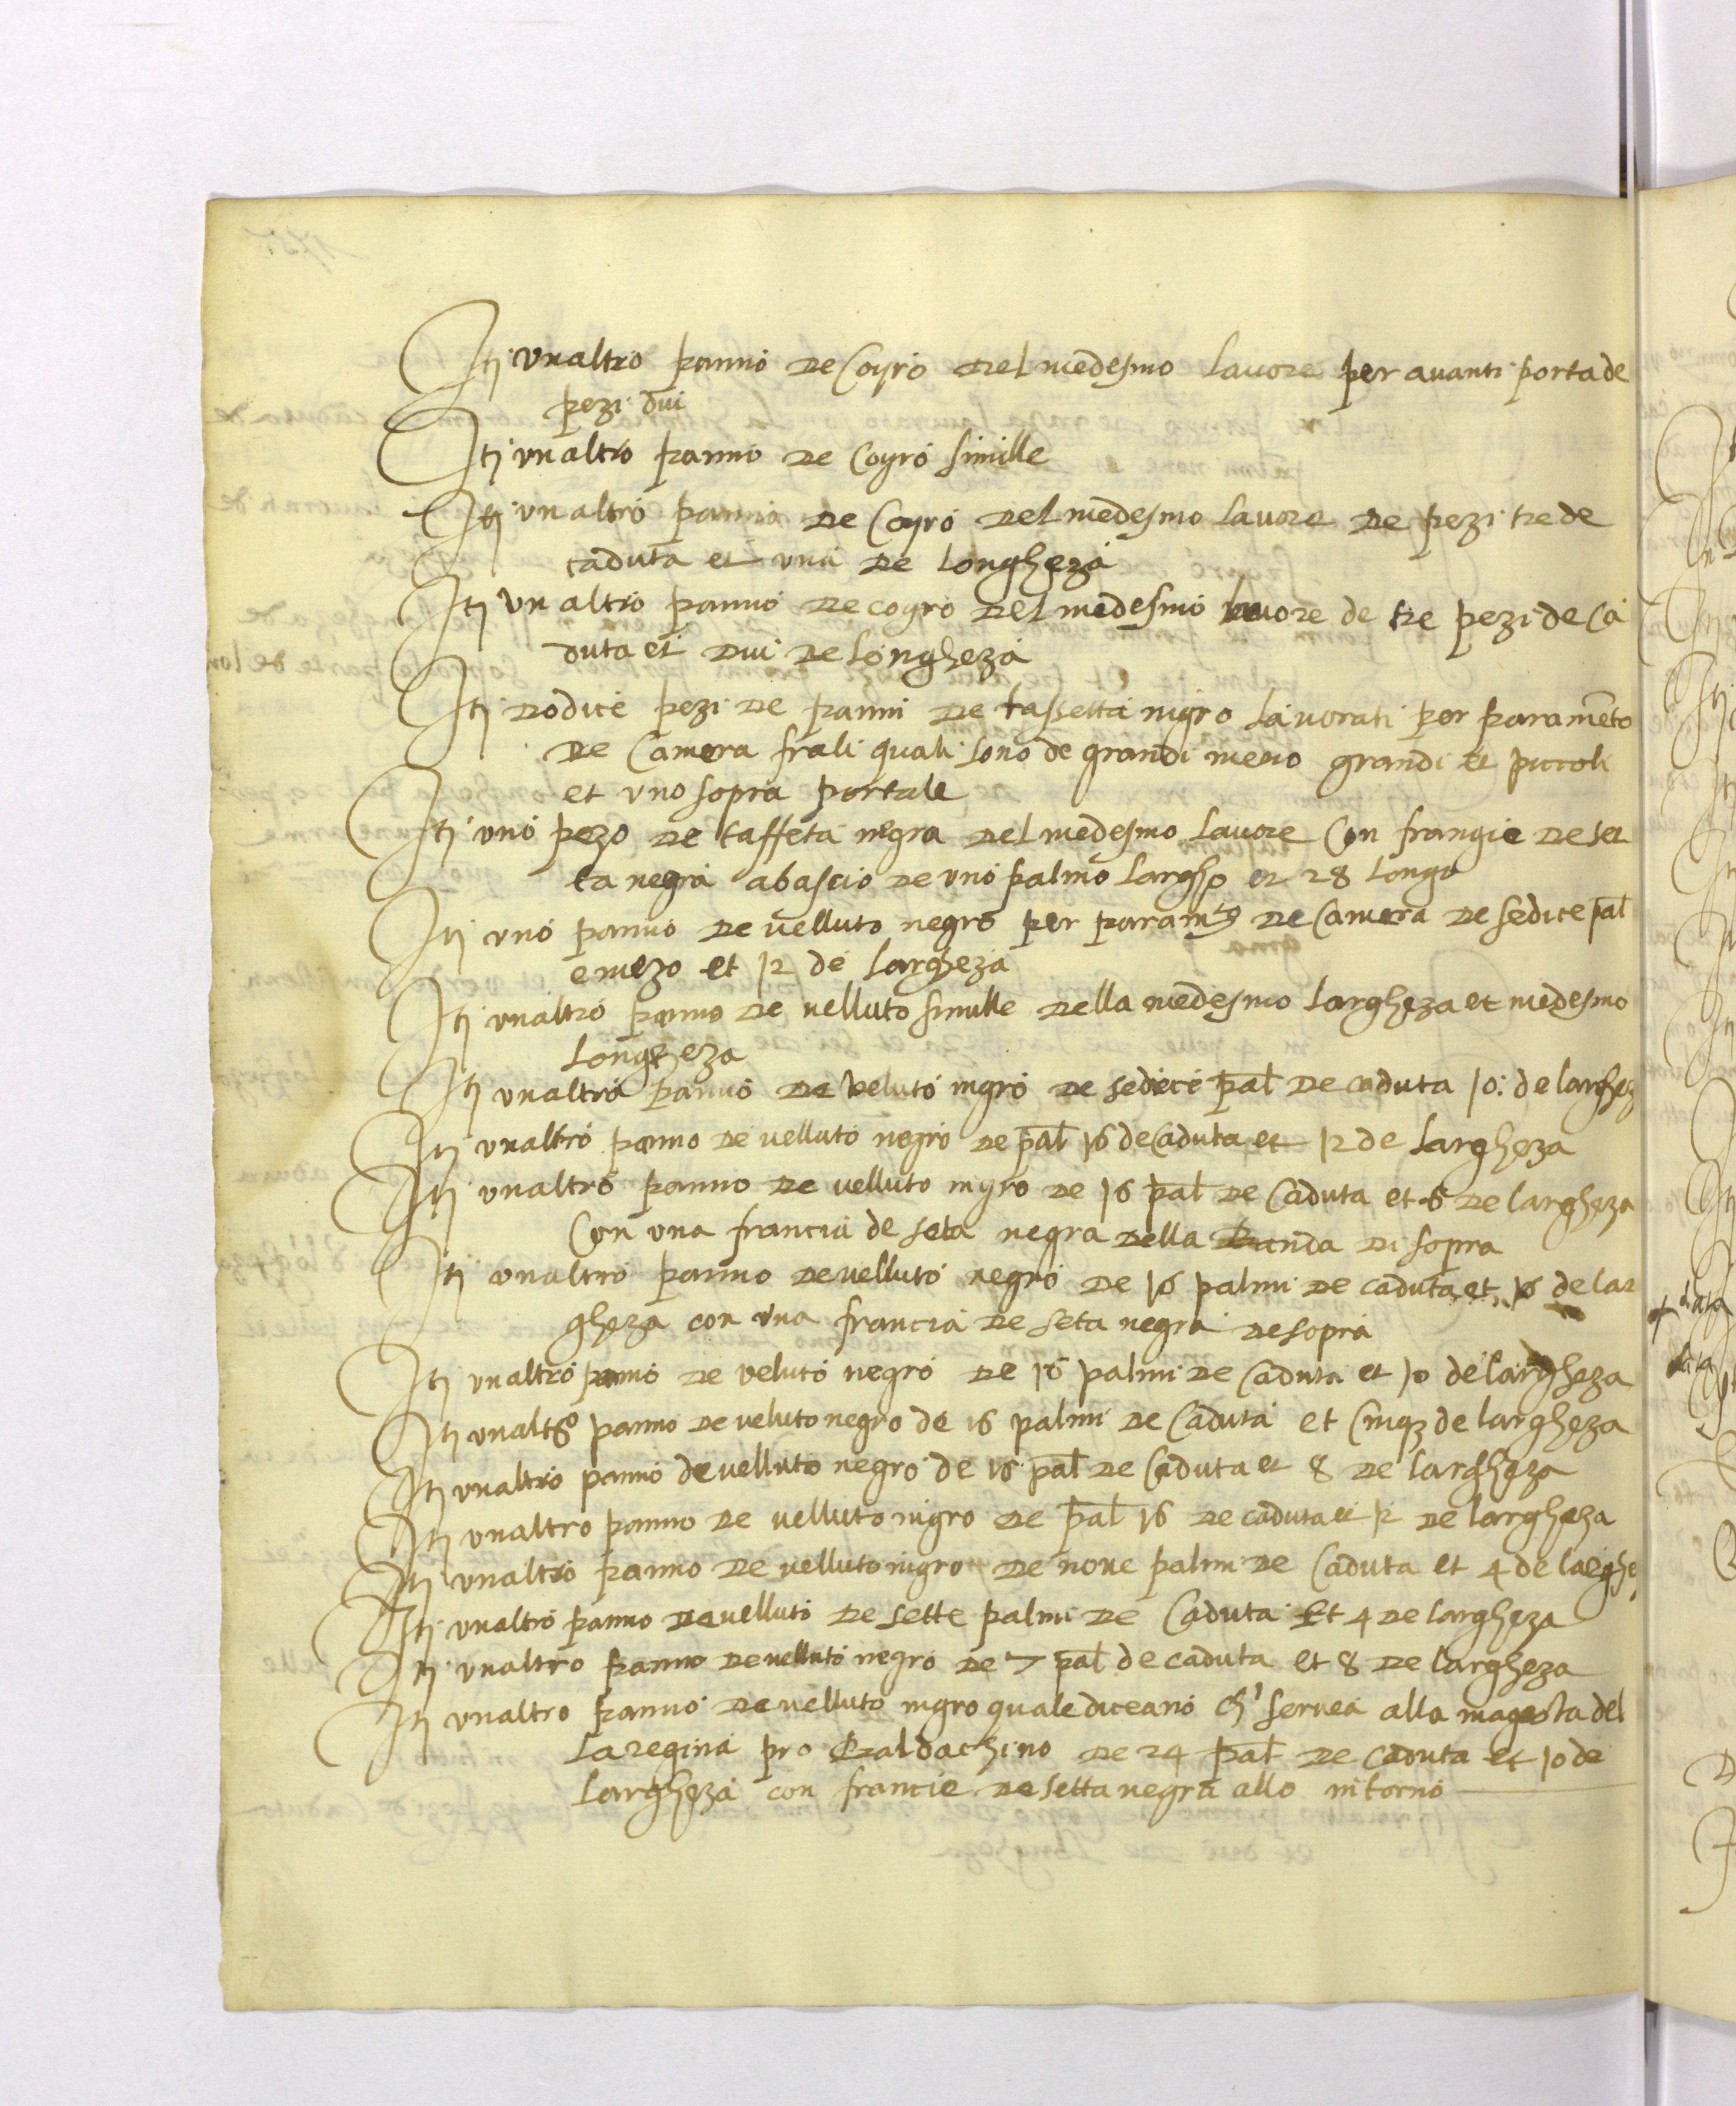 Itj unaltro panno de Coyro del medesmo lavore per avanti porta de
pezi dui
Itj un altro panno de Coyro simille
Itj un altro panno de Coyro del medesmo lavore de pezi tre de
caduta et una de longheza
Itj un altro panno de coyro del medesmo lavore de tre pezi de Ca
duta et dui de longheza
Itj dodice pezi de panni de taffetta nigro lavorati per paramẽto
de Camera frali quali sono de grandi meno grandi et piccoli
et uno sopra portale
Itj uno pezo de taffeta negra del medesmo lavore Con frangie de set
ta negra abascio de uno palmo largho et 28 longo
Itj uno panno de velluto negro per param̃to de Camera de sedice pal̃
e mezo et 12 de largheza
Itj unaltro panno de velluto simille della medesmo largheza et medesmo
longheza
Itj unaltro panno de veluto nigro de sedice pal̃ de caduta 10: de larghez
Itj unaltro panno de velluto negro de pal̃ 16 de Caduta et 12 de largheza
Itj unaltro panno de velluto nigro de 16 pal̃ de Caduta et 6 de largheza
Con una francia de seta negra della Banda di sopra
Itj unaltro panno de velluto negro de 16 palmi de caduta et 16 de lar
gheza con una francia de seta negra de sopra
Itj unaltro panno de veluto negro de 16 palmi de Caduta et 10 de largheza
Itj unaltro panno de veluto negro de 16 palmi de Caduta et Cinqz de largheza
Itj unaltro panno de velluto negro de 16 pal̃ de Caduta et 8 de largheza
Itj unaltro panno de velluto nigro de pal̃ 16 de caduta et 12 de largheza
Itj unaltro panno de velluto nigro de nove palmi de Caduta et 4 de larghe
Itj unaltro panno de velluto de sette palmi de Caduta Et 4 de largheza
Itj unaltro panno de velluto negro de 7 pal̃ de caduta et 8 de largheza
Itj unaltro panno de velluto nigro quale diceano ch' servea alla magesta del
la regina pro Baldachino de 24 pal̃ de caduta et 10 de
largheza con francie de setta negra allo intorno